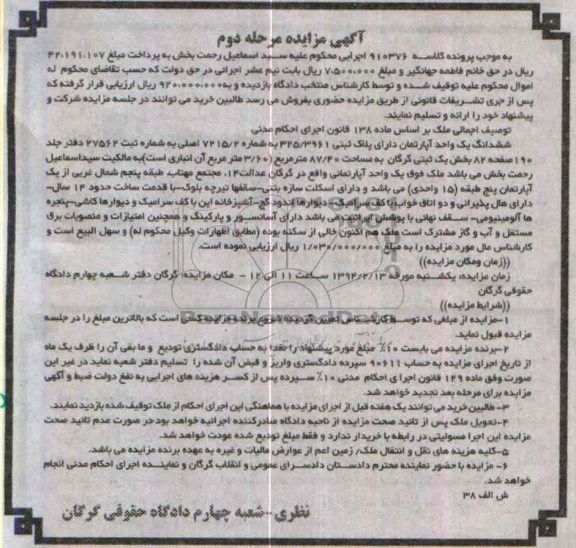 آگهی مزایده مرحله دوم
به موجب پرونده کلاسه ۹۱۰۳۷۶ اجرایی محکوم علیه سید اسماعیل رحمت بخش به پرداخت مبلغ ۴۲،۱۹۱،۱۰۷
ریال در حق خانم فاطمه جهانگیر و مبلغ ۷،۵۰۰،۰۰۰ ریال بابت نیم عشر اجرائی در حق دولت که حسب تقاضای محکوم له
اموال محکوم علیه توقیف شده و توسط کارشناس منتخب دادگاه بازدید و به ۹۲۰،۰۰۰،۰۰۰ ریال ارزیابی قرار گرفته که
پس از جری تشریفات قانونی از طریق مزایده حضوری بفروش می رسد طالبین خرید می توانند در جلسه مزایده شرکت و
پیشنهاد خود را ارائه و تسلیم نمایند.
توصیف اجمالی ملک بر اساس ماده ۱۳۸ قانون اجرای احکام مدنی
ششدانگ یک واحد آپارتمان دارای پلاک ثبتی ۳۲۵/۳۹۶۱ به شماره ۷۲۱۵/۲ اصلی به شماره ثبت ۲۷۵۶۲ دفتر جلد
۱۹۰صفحه ۸۲ بخش یک ثبتی گرگان به مساحت ۸۷/۴۰ مترمربع (۳/۶۰ متر مربع آن انباری است)به مالکیت سیداسماعیل
رحمت بخش می باشد ملک فوق یک واحد آپارتمانی واقع در گرگان عدالت۱۴، مجتمع مهتاب طبقه پنجم شمال غربی از یک
آپارتمان پنج طبقه (۱۵ واحدی) می باشد و دارای اسکلت سازه بتنی-سقفها تیرچه بلوک-با قدمت ساخت حدود ۱۴ سال-
دارای هال پذیرائی و دو اتاق خواب با کف سرامیک-دیوارها اندود گچ-آشپزخانه این با کف سرامیک و دیوارها کاشی-پنجره
ها آلومینیومی- سقف نهائی با پوشش ایرانیت می باشد دارای آسانسور و پارکینگ و همچنین امتیازات و منصوبات برق
مستقل و آب و گاز مشترک است ملک هم اکنون خالی از سکنه بوده (مطابق اظهارات وکیل محکوم له) و سهل البیع است و
کارشناس مال مورد مزایده را به مبلغ ۱/۰۳۰/۰۰۰/۰۰۰ ریال ارزیابی نموده است.
((زمان ومکان مزایده))
زمان مزایده: یکشنبه مورخه ۱۳۹۴/۲/۱۳ ساعت ۱۱ الی ۱۲ - مکان مزایده: گرگان دفتر شعبه چهارم دادگاه
حقوقی گرگان
((شرایط مزایده))
۱-مزایده از مبلغی که توسط کارشناس تعیین گردیده شروع برنده مزایده کسی است که بالاترین مبلغ را در جلسه
مزایده قبول نماید.
۲-برنده مزایده می بایست ۱۰٪ مبلغ مورد پیشنهاد را نقدا به حساب دادگستری تودیع و ما بقی آن را ظرف یک ماه
از تاریخ اجرای مزایده به حساب ۹۰۶۱۱ سپرده دادگستری واریز و قبض آن شده را تسلیم دفتر شعبه نماید در غیر این
صورت وفق ماده ۱۲۹ قانون اجرا ی احکام مدنی ۱۰٪ سپرده پس از کسر هزینه های اجرایی به نفع دولت ضبط و آگهی
مزایده برای مرحله بعد تجدید خواهد شد.
۳- طالبین خرید می توانند یک هفته قبل از اجرای مزایده با هماهنگی این اجرای احکام از ملک توقیف شده بازدید نمایند.
۴-تحویل ملک پس از تائید صحت مزایده از ناحیه دادگاه صادرکننده اجرائیه خواهد بود در صورت عدم تائید صحت
مزایده این اجرا مسولیتی در رابطه با خریدار ندارد و فقط مبلغ تودیع شده عودت خواهد شد.
۵-کلیه هزینه های نقل و انتقال ملک/ زمین اعم از عوارض مالیات و غیره به عهده برنده مزایده می باشد.
۶- مزایده با حضور نماینده محترم دادستان دادسرای عمومی و انقلاب گرگان و نماینده اجرای احکام مدنی انجام
خواهد شد.
ش الف ۳۸
نظری-شعبه چهارم دادگاه حقوقی گرگان